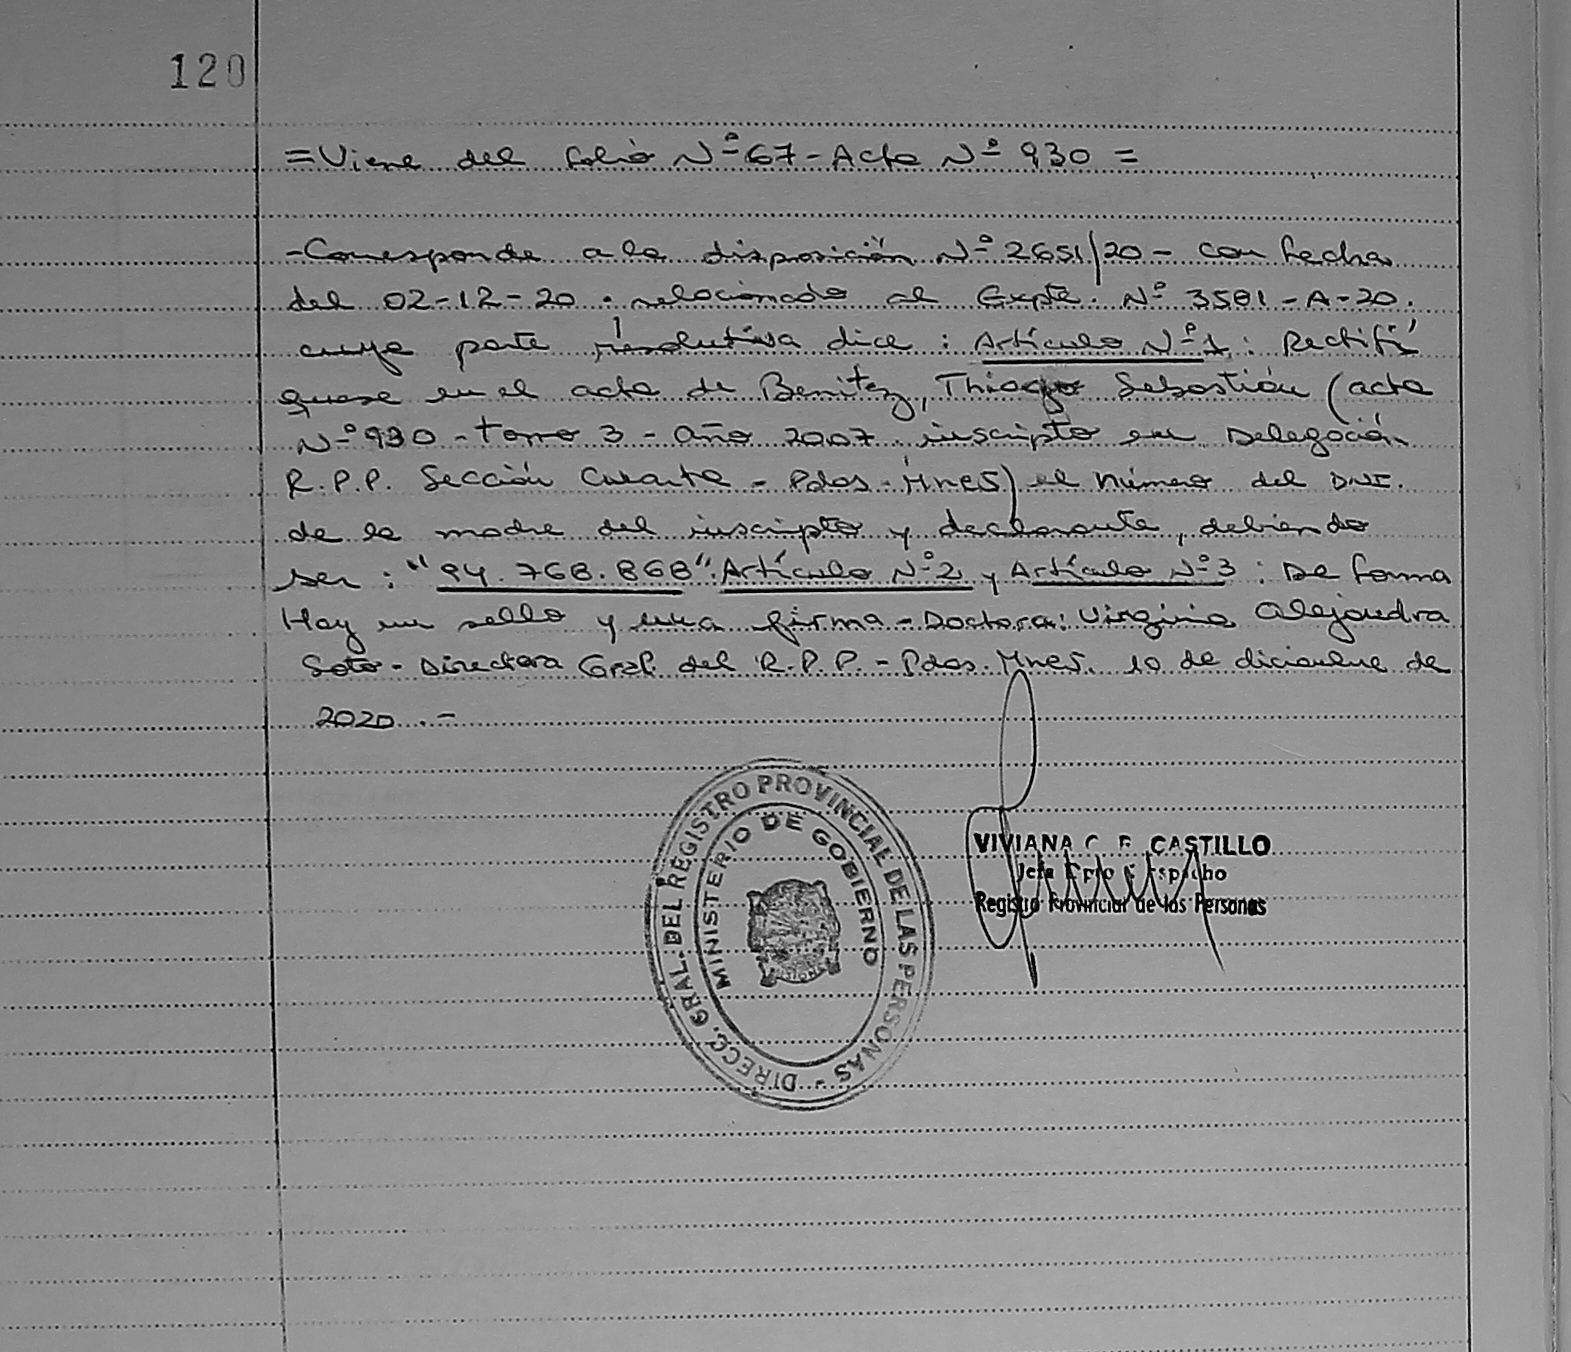 120
=Viene del folio Nº 67-Acta Nº 930 =
-Corresponde a la disposición Nº 2651/20- con fecha
del 02-12-20. relacionado al Expte. Nº 3581-A-20.
cuya parte resolutiva dice : Artículo Nº1: Rectifí
quese en el acta de Benitez, Thiago Sebastián (acta
Nº 930 - tomo 3 - año 2007 inscripto en Delegación
R.P.P. Sección Cuarta - Pdas-Mnes) el número del DNI.
de la madre del inscripto y declarante, debiendo
ser : "94.768.868". Artículo Nº2 y Artículo Nº3 : De forma
Hay un sello y una firma - Doctora: Virginia Alejandra
Soto - Directora Gral. del R.P.P. - Pdas. Mnes. 10 de diciembre de
2020 .-
DIRECC. GRAL. DEL REGISTRO PROVINCIAL DE LAS PERSONAS -
MINISTERIO DE GOBIERNO
VIVIANA C. CASTILLO
Jefa
Registro Provincial de las Personas